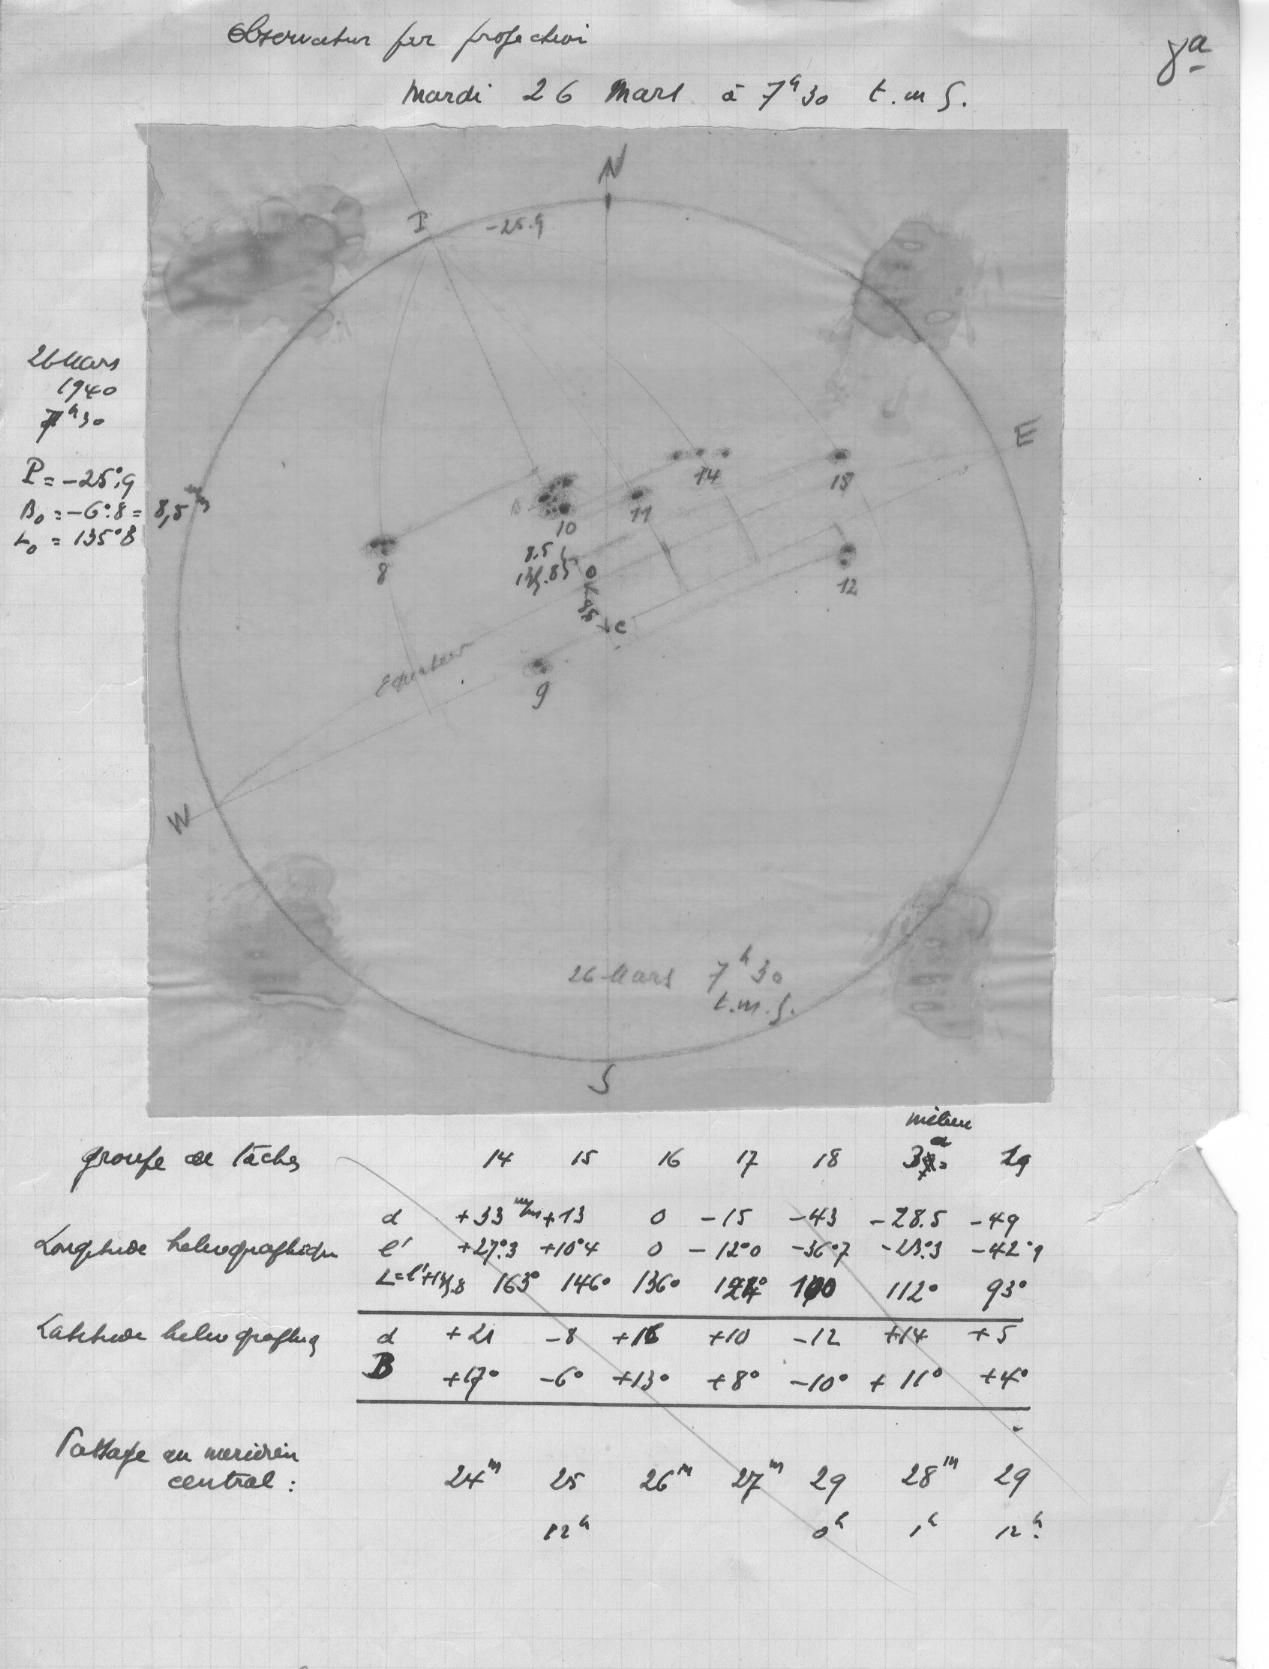 Observation par projection
8a
Mardi 26 Mars à 7h30 t.m G.
N
P
-25.9
26 Mars
1940
7h30
E
P = -25°.9
B0 = -6°.8 = 8,5
L0 = 135°8
14
15
11
10
8
8.5
135.85
O
12
C
9
Equateur
W
26 Mars 7h30
t.m.G.
S
milieu
groupe de tâches 14 15 16 17 18 19
d +33 m/m +13 0 -15 -43 -28.5 -49
Longitude heliographique l' +27°3 +10°4 0 -12°0 -36°7 -23°3 -42°9
L=l'+135,8 163° 146° 136° 124° 100 112° 93°
Latitude heliographiq d +21 -8 +16 +10 -12 +14 +5
B +17° -6° +13° +8° -10° +11° +4°
Passage au meridien
central : 24m 25 26m 27m 29 28m 29
12h 0h 1h 12h